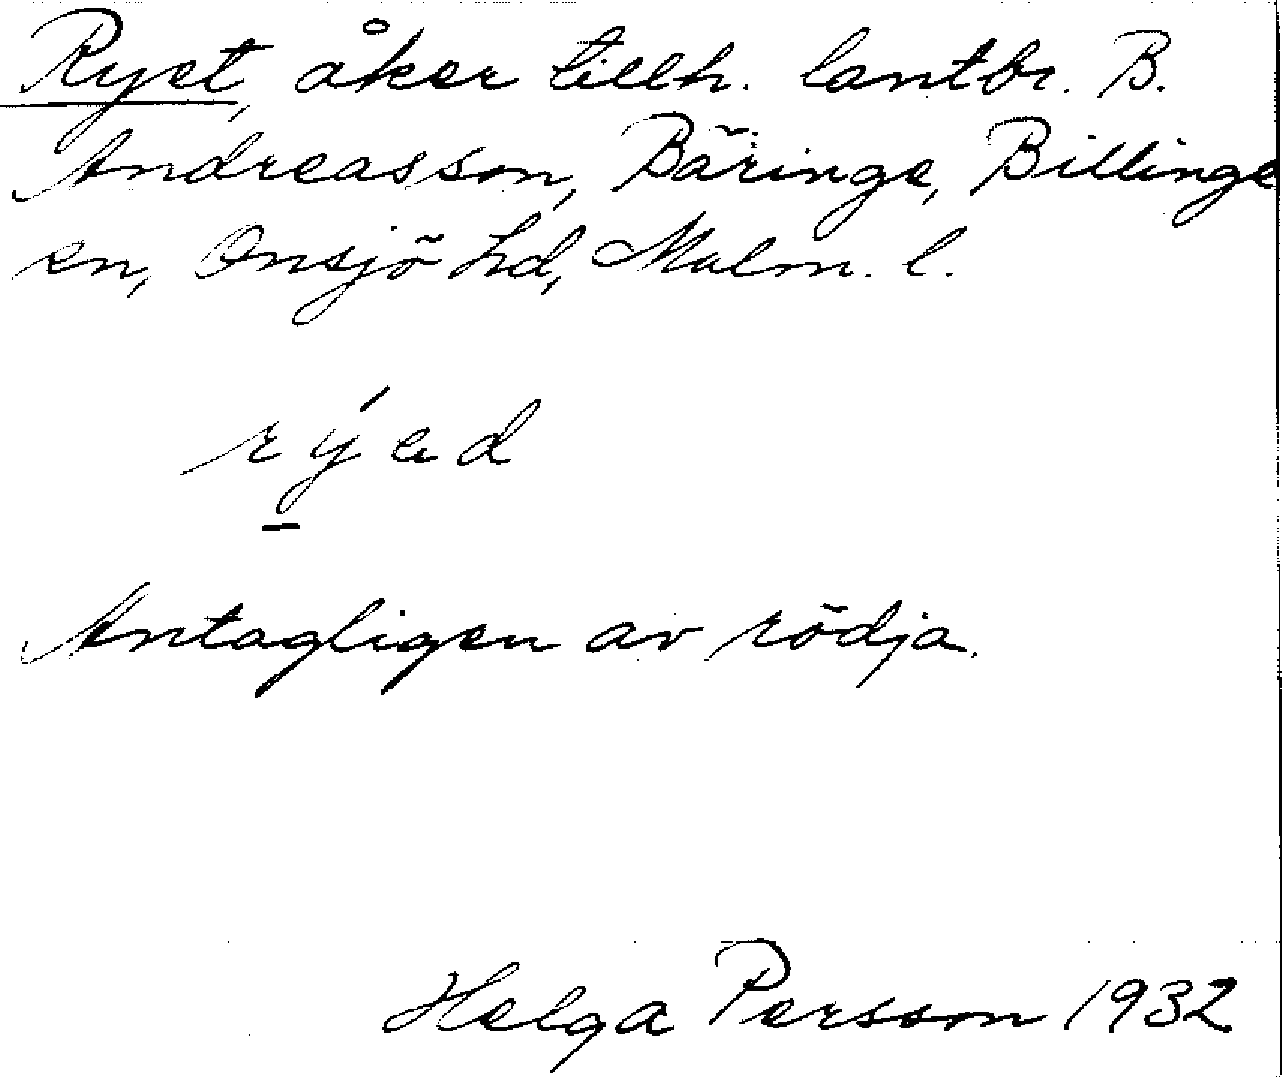 Ryet, åker tillh. lantbr. B.
Andreasson, Bäringe, Billinge
sn, Onsjö hd, Malm. l.
rýad
Antagligen av rödja.
Helga Persson 1932